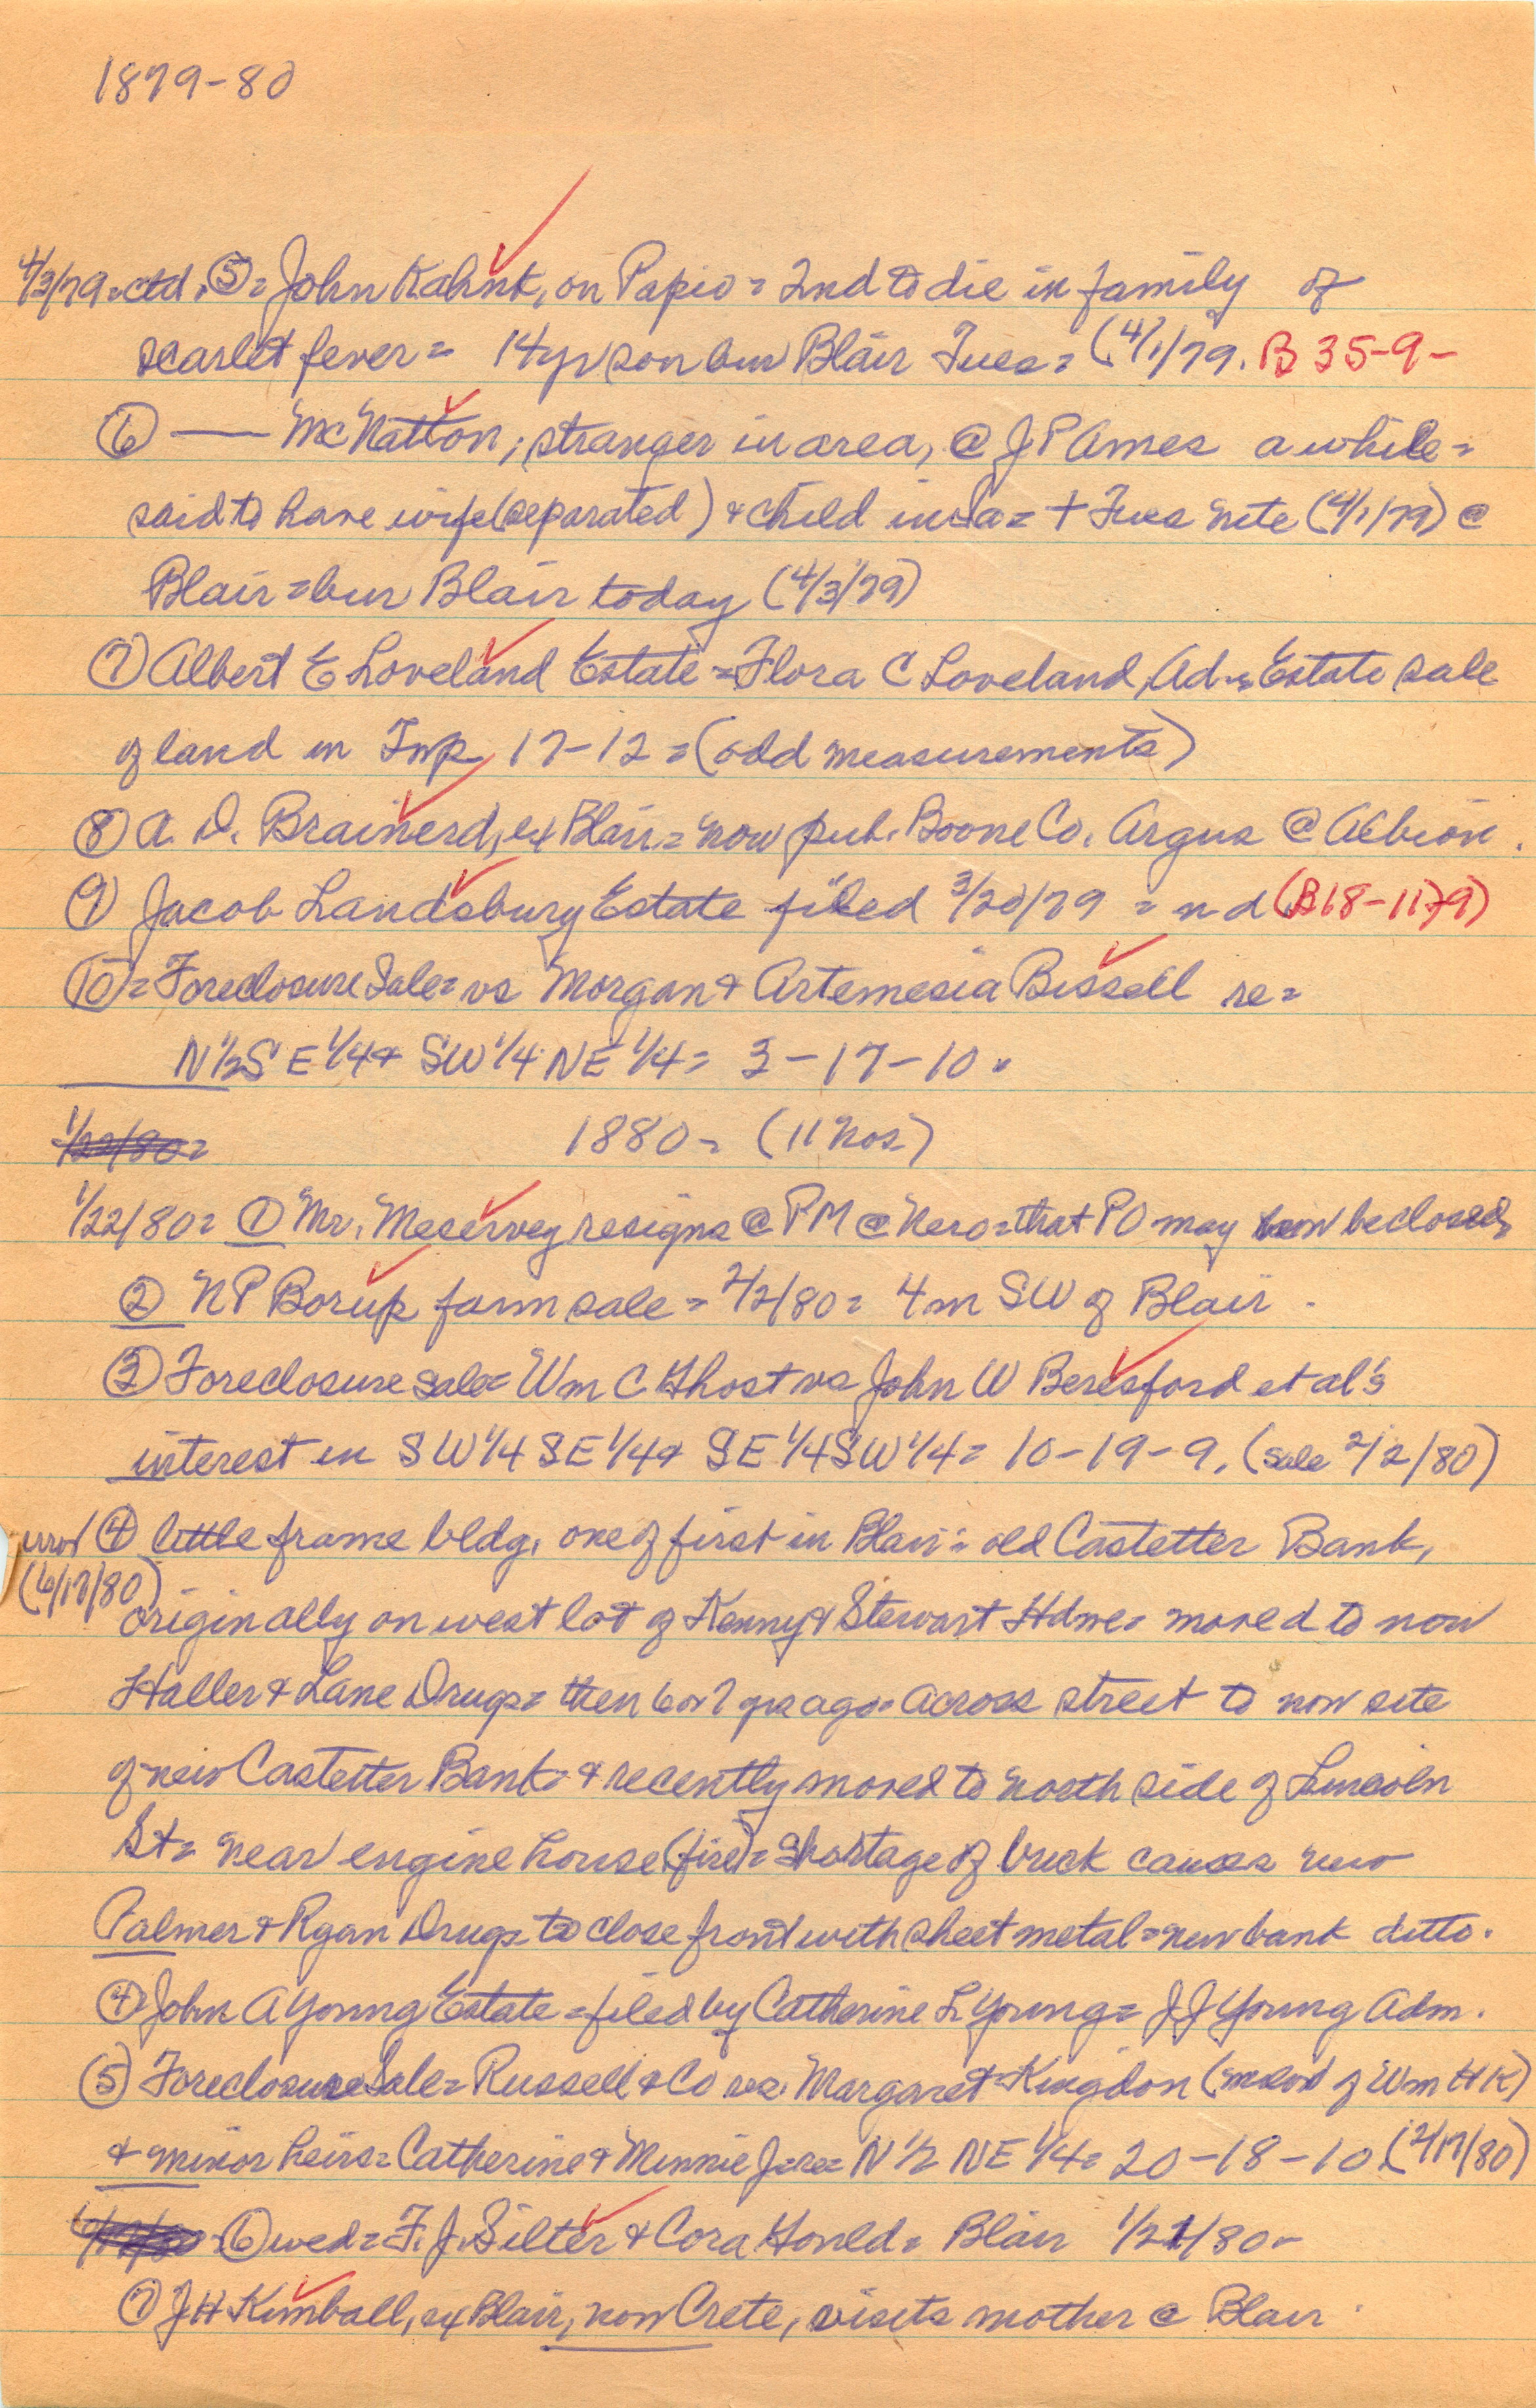 1879-80
4/3/79=ctd. ⑤= John Kahnk, on Papio = 2nd to die in family of
scarlet fever = 14yr son bur Blair Tues = (4/1/79. B 35-9-
⑥ — McNatton; stranger in area, @ J P Ames a while =
said to have wife (separated) & child in Ia = + Tues nite (4/1/79) @
Blair = bur Blair today (4/3/79)
⑦ Albert E Loveland Estate = Flora C Loveland, Ad = Estate sale
of land in Twp 17-12 = (odd measurements)
⑧ A. D. Brainerd, ex Blair = now pub. Boone Co. Argus @ Albion.
⑨ Jacob Landsbury Estate filed 3/20/79 = nd (B18-1179)
⑩ = Foreclosure Sale = vs Morgan & Artemesia Bissell re =
N½SE¼ & SW¼NE¼ = 3-17-10.
1/22/80= 1880 = (11 Nos)
1/22/80= ① Mr. Meservey resigns @ PM @ Nero = that PO may now be closed,
② N P Borup farm sale = 2/2/80 = 4m SW of Blair.
③ Foreclosure sale = Wm C Ghost vs John W Beresford et al's
interest in SW¼SE¼ & SE¼SW¼ = 10-19-9. (sale 2/2/80)
error ④ little frame bldg. one of first in Blair = old Castetter Bank,
(6/17/80)
originally on west lot of Kenny & Stewart Hdwe = moved to now
Haller & Lane Drugs = then 6 or 7 yrs ago = across street to now site
of new Castetter Bank = & recently moved to north side of Lincoln
St = near engine house (fire) = shortage of brick causes new
Palmer & Ryan Drugs to close front with sheet metal = new bank ditto.
④ John A Young Estate = filed by Catherine L Young = J J Young Adm.
⑤ Foreclosure Sale = Russell & Co vs. Margaret Kingdon (widow of Wm H K)
& minor heirs = Catherine & Minnie J = re = N½ NE¼ = 20-18-10. (2/17/80)
⑥ wed = F. J. Silter & Cora Hould = Blair 1/21/80-
⑦ J H Kimball, ex Blair, now Crete, visits mother @ Blair.